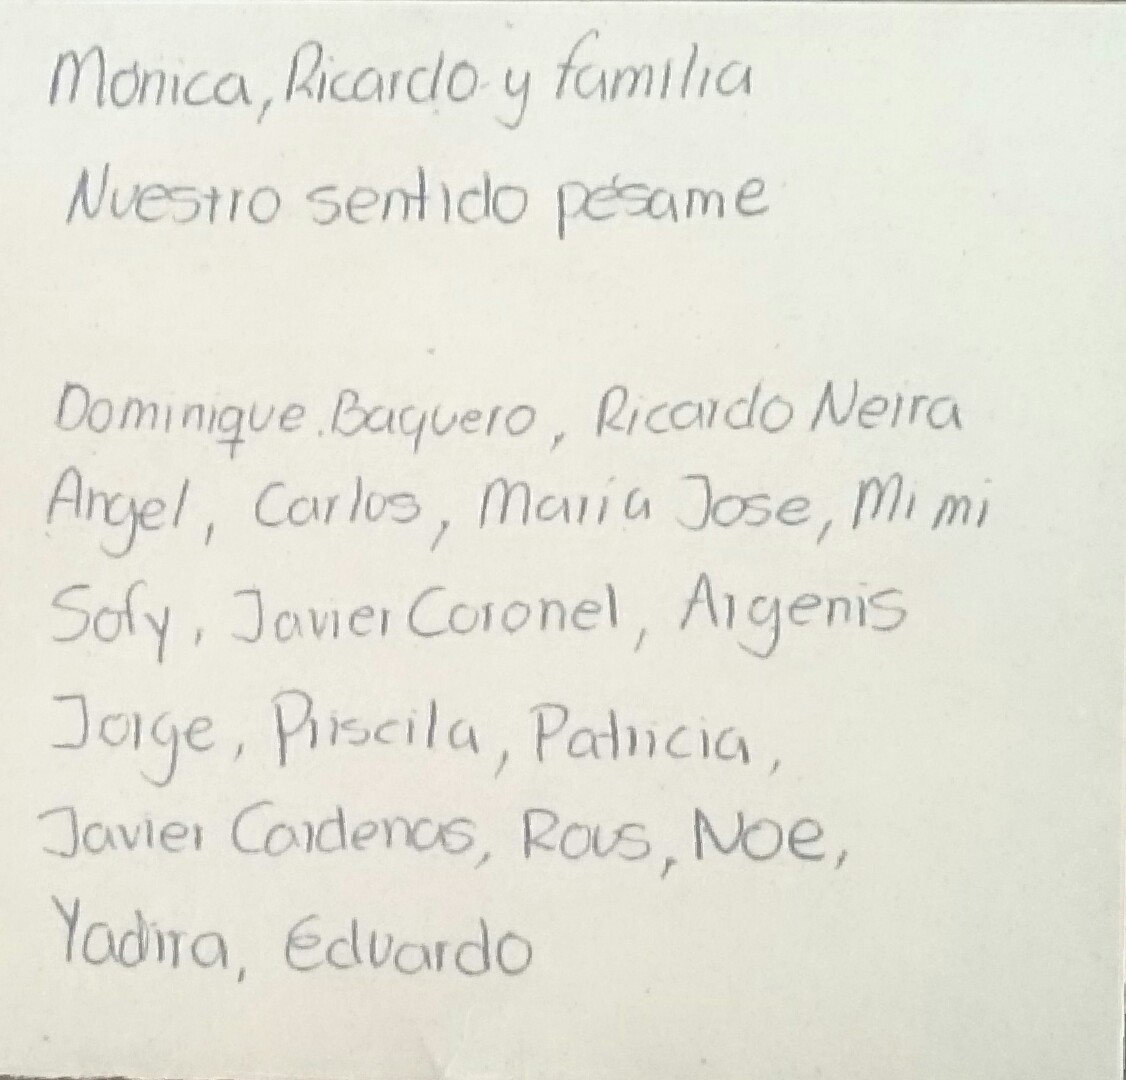 Mónica, Ricardo y familia
Nuestro sentido pésame
Dominique Baquero, Ricardo Neira
Angel, Carlos, María Jose, Mimi
Sofy, Javier Coronel, Argenis
Jorge, Priscila, Patricia,
Javier Cardenas, Rous, Noe,
Yadira, Eduardo